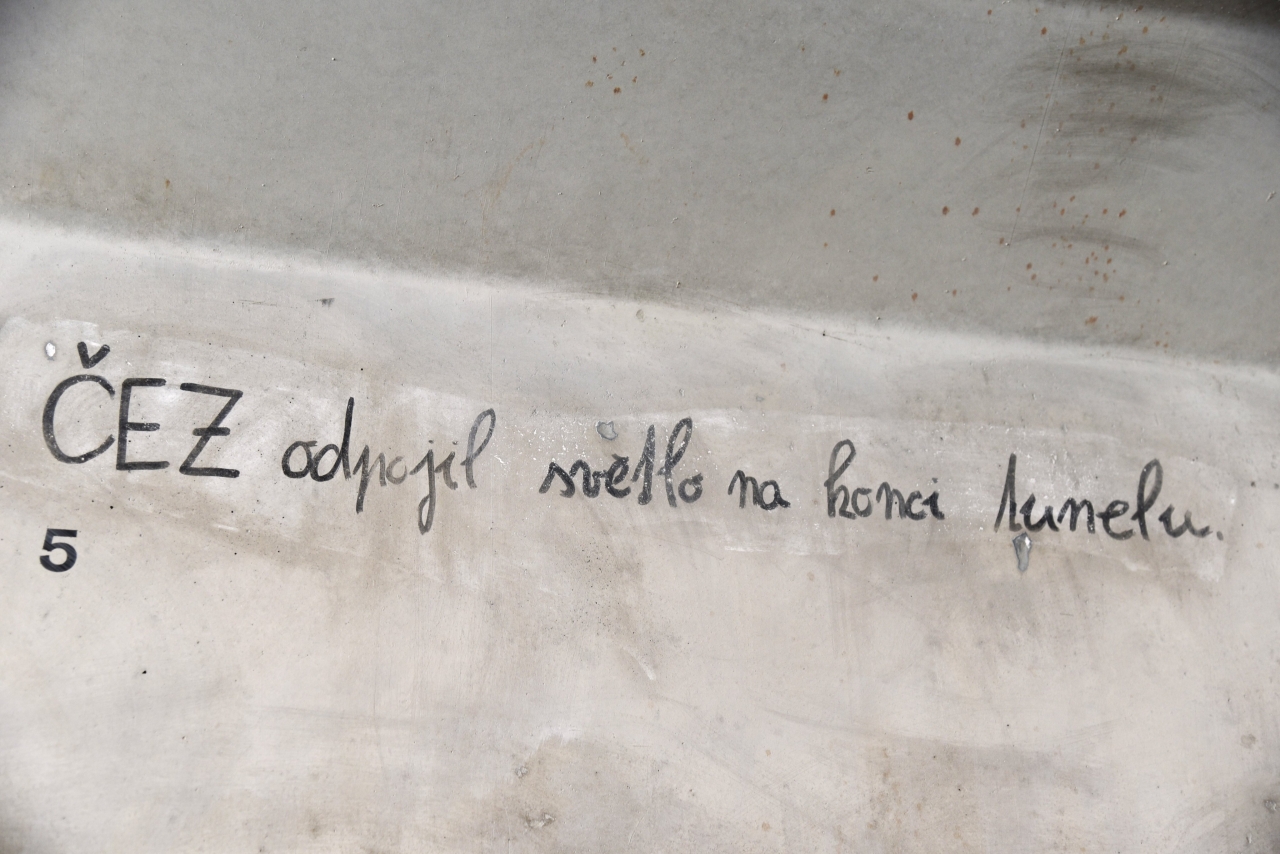 ČEZ odpojil světlo na konci tunelu.
5